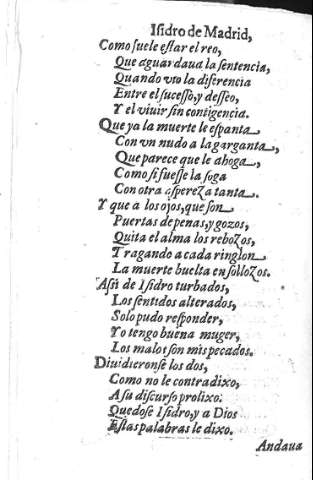 Isidro de Madrid,
Como suele estar el reo,
Que aguardaua la sentencia,
Quando vio la diferencia
Entre el sucesso, y desseo,
Y el viuir sin contigencia.
Que ya la muerte le espanta
Con vn nudo a la garganta,
Que parece que le ahoga,
Como si fuesse la soga
Con otra aspereza tanta.
Y que a los ojos, que son
Puertas de penas, y gozos,
Quita el alma los rebozos,
Tragando a cada ringlon
La muerte buelta en sollozos.
Assi de Isidro turbados,
Los sentidos alterados,
Solo pudo responder,
Yo tengo buena muger,
Los malos son mis pecados.
Diuidieronse los dos,
Como no le contradixo,
A su discurso prolixo.
Quedose Isidro, y a Dios
Estas palabras le dixo.
Andaua